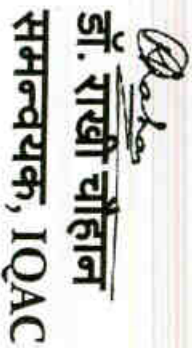 डॉ. राखी चौहान
समन्वयक, IQAC